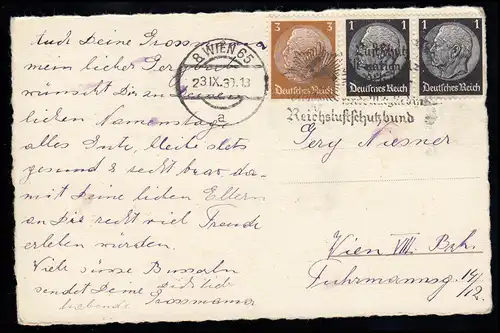 Auch Deine Grossmama
mein lieber Gery
wünscht Dir zum
lieben Namenstage
alles Gute, bleibe stets
gesund & recht brav da-
mit Deine lieben Eltern
an Dir recht viel Freude
erleben werden.
Viele süsse Busserln
sendet Deine Dich lieb
habende Grossmama
8 WIEN 65
23.IX.39.13
a
3
Deutsches Reich
1
Deutsches Reich
1
Deutsches Reich
Luftschutz
Reichsluftschutzbund
Gery Niesner
Wien VIII. Bez.
Fuhrmannsg. 14/
12.